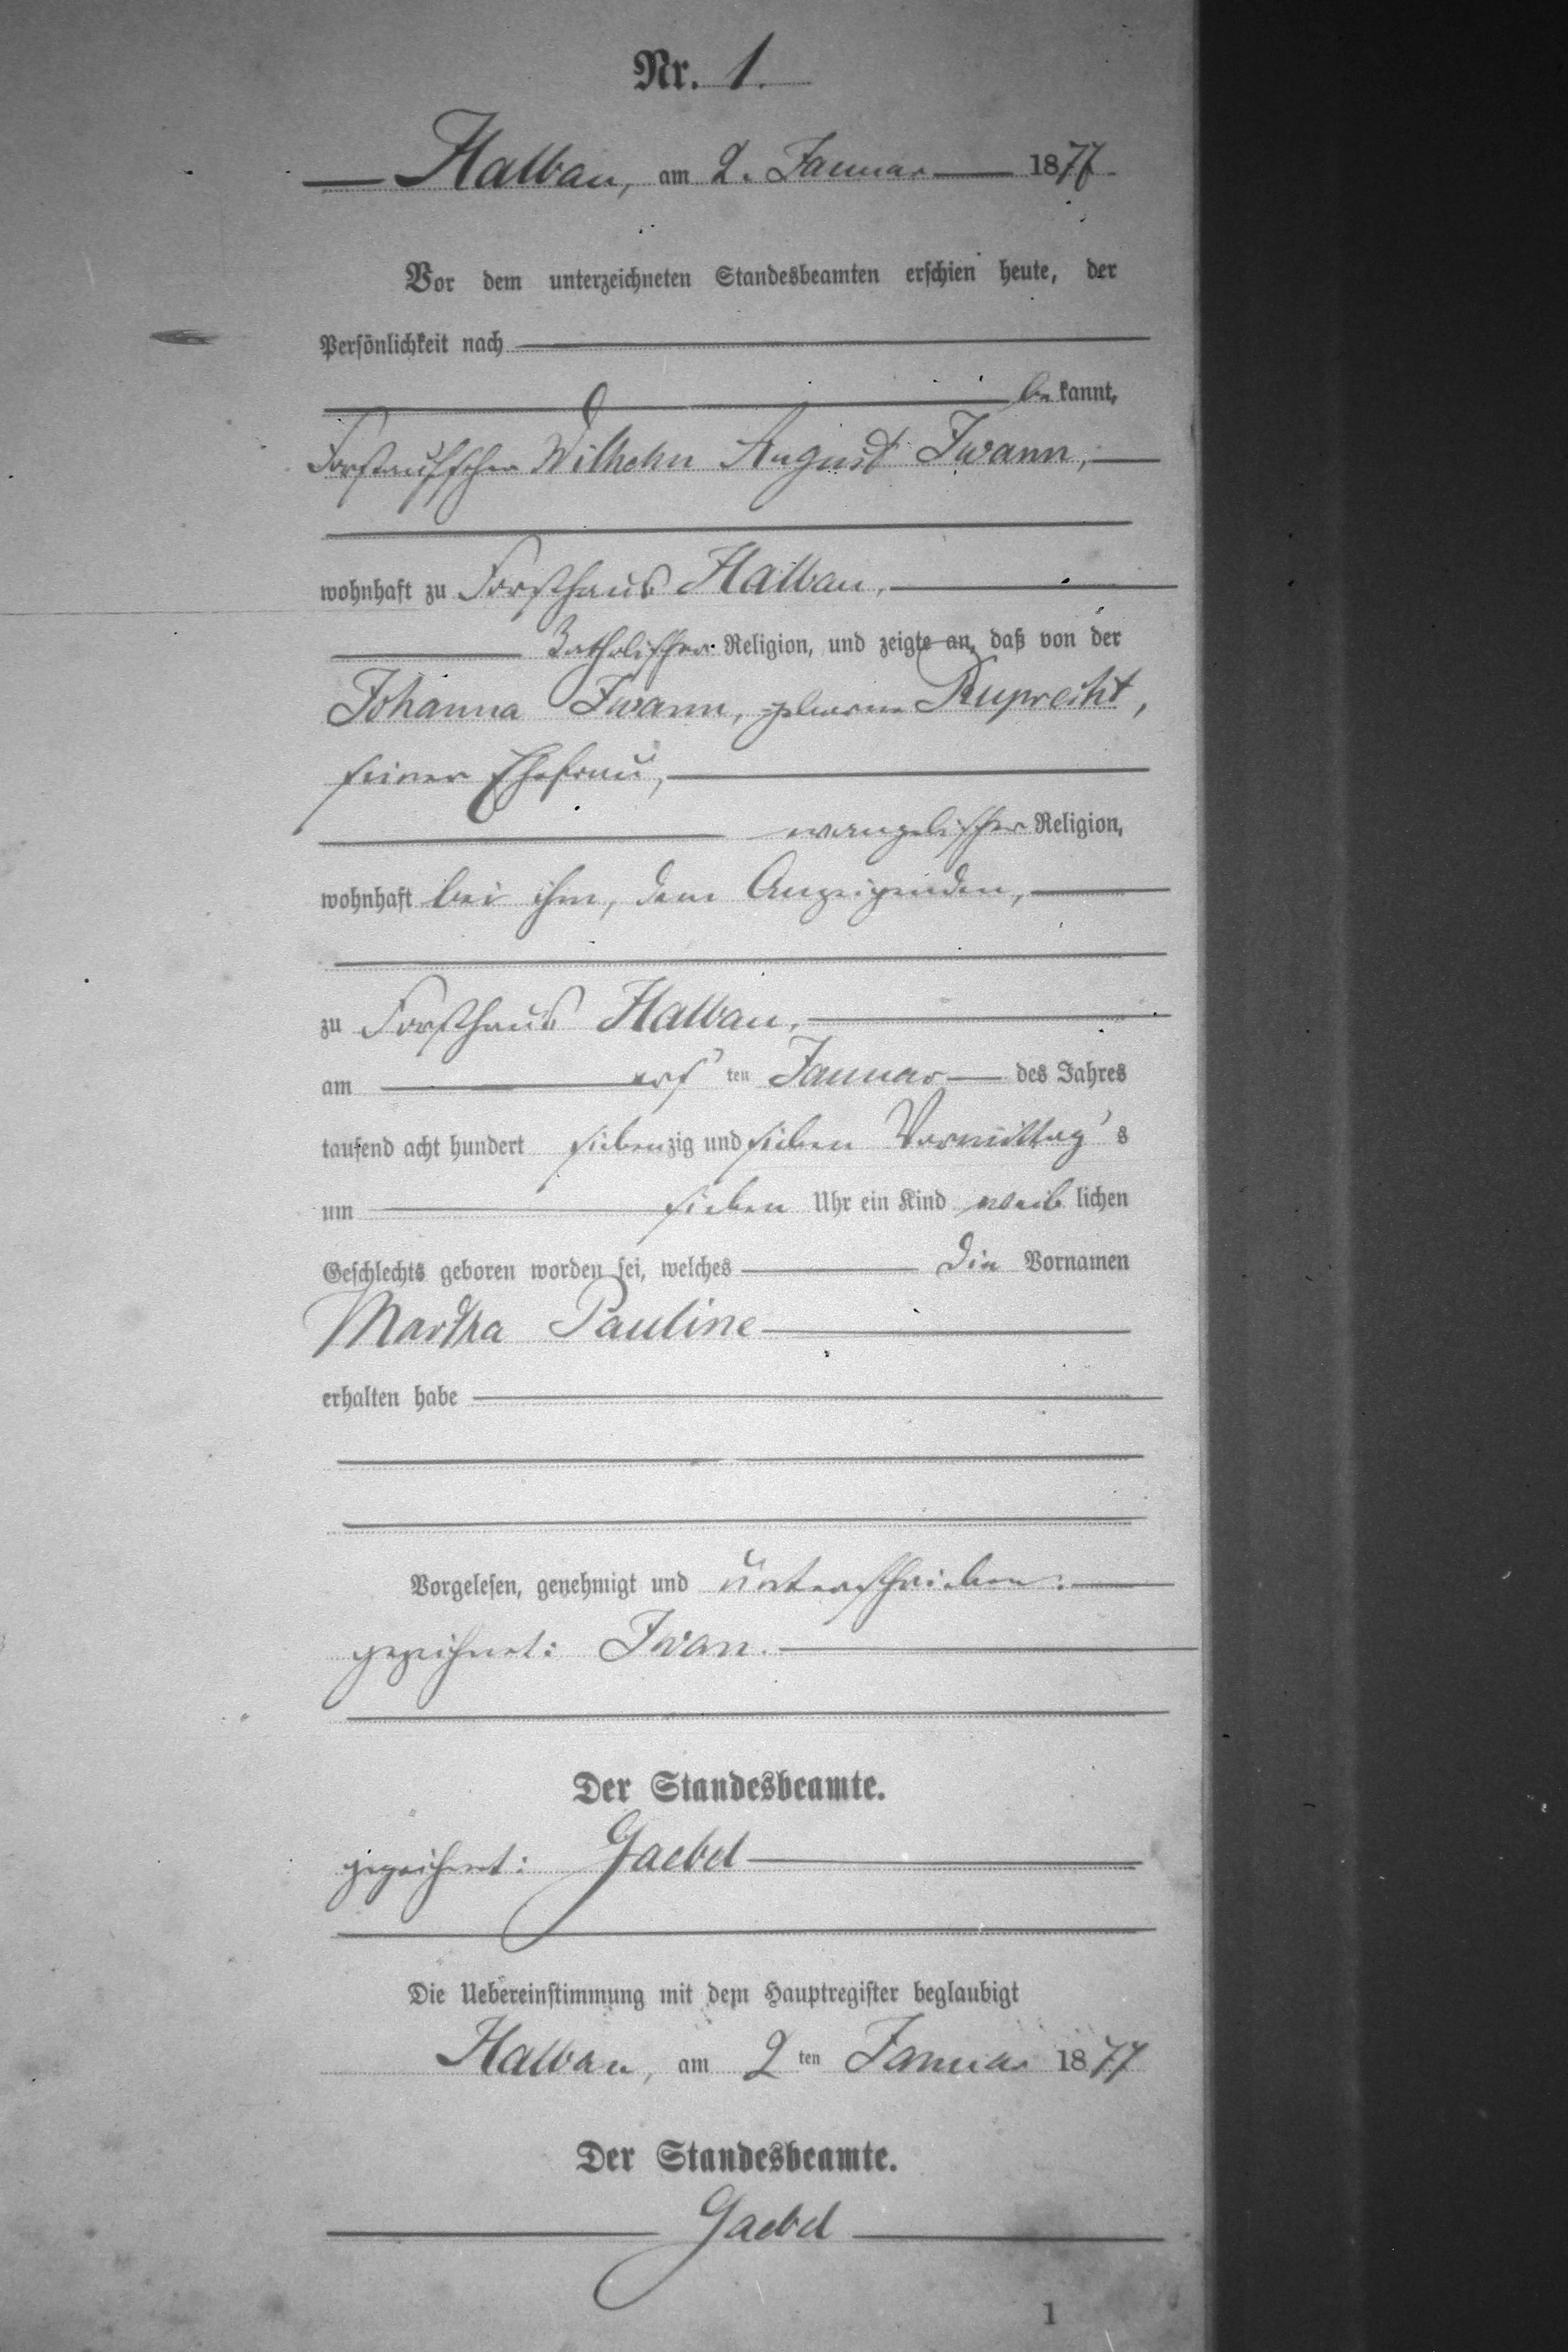 Nr. 1.
Halbau, am 2. Januar 1877.
Vor dem unterzeichneten Standesbeamten erschien heute, der
Persönlichkeit nach
bekannt,
Forstaufseher Wilhelm August Iwann,
wohnhaft zu Forsthaus Halbau,
katholischer Religion, und zeigte an, daß von der
Johanna Iwann, geborene Ruprecht,
seiner Ehefrau,
evangelischer Religion,
wohnhaft bei ihm, dem Anzeigenden,
zu Forsthaus Halbau,
am ersten Januar des Jahres
tausend acht hundert siebenzig und sieben Vormittags
um sieben Uhr ein Kind weiblichen
Geschlechts geboren worden sei, welches die Vornamen
Martha Pauline
erhalten habe
Vorgelesen, genehmigt und unterschrieben:
gezeichnet: Iwan.
Der Standesbeamte.
gezeichnet: Gaebel
Die Uebereinstimmung mit dem Hauptregister beglaubigt
Halbau, am 2ten Januar 1877
Der Standesbeamte.
Gaebel
1